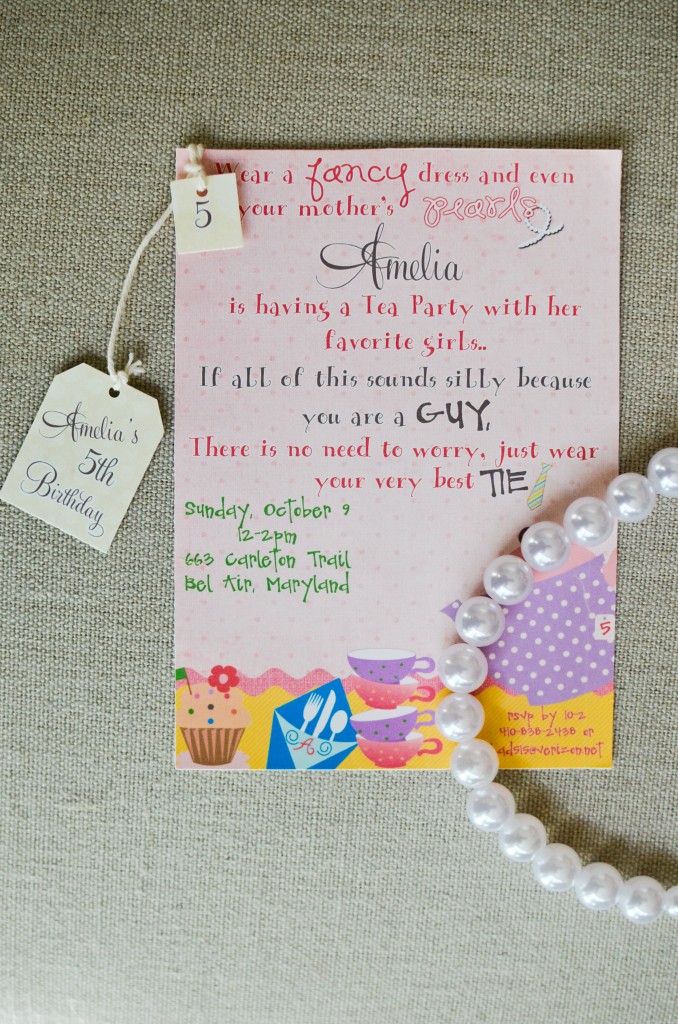 Wear a fancy dress and even
your mother's pearls
5
Amelia
is having a Tea Party with her
favorite girls..
If all of this sounds silly because
you are a GUY,
There is no need to worry, just wear
your very best TIE
Amelia's
5th
Birthday
Sunday, October 9
12-2pm
663 Carleton Trail
Bel Air, Maryland
5
A
rsvp by 10-2
410-838-2438 or